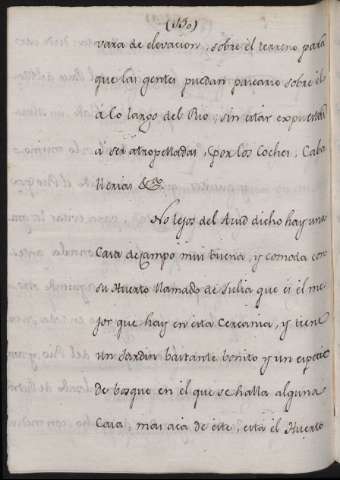 (130)
vara de elevacion, sobre el terreno para
que las gentes puedan pasearse sobre el
a lo largo del Rio, sin estar expuestas
a ser atropelladas, por los Coches, Caba
llerias &.
No lejos del dicho hay una
Casa de Campo mui buena, y comoda con
su Huerto llamado de Julia que es el me
jor que hay en esta Cercania, y tiene
un Jardin bastante bonito y un especie
de bosque en el que se halla alguna
Casa, mas aca de este, esta el Huerto